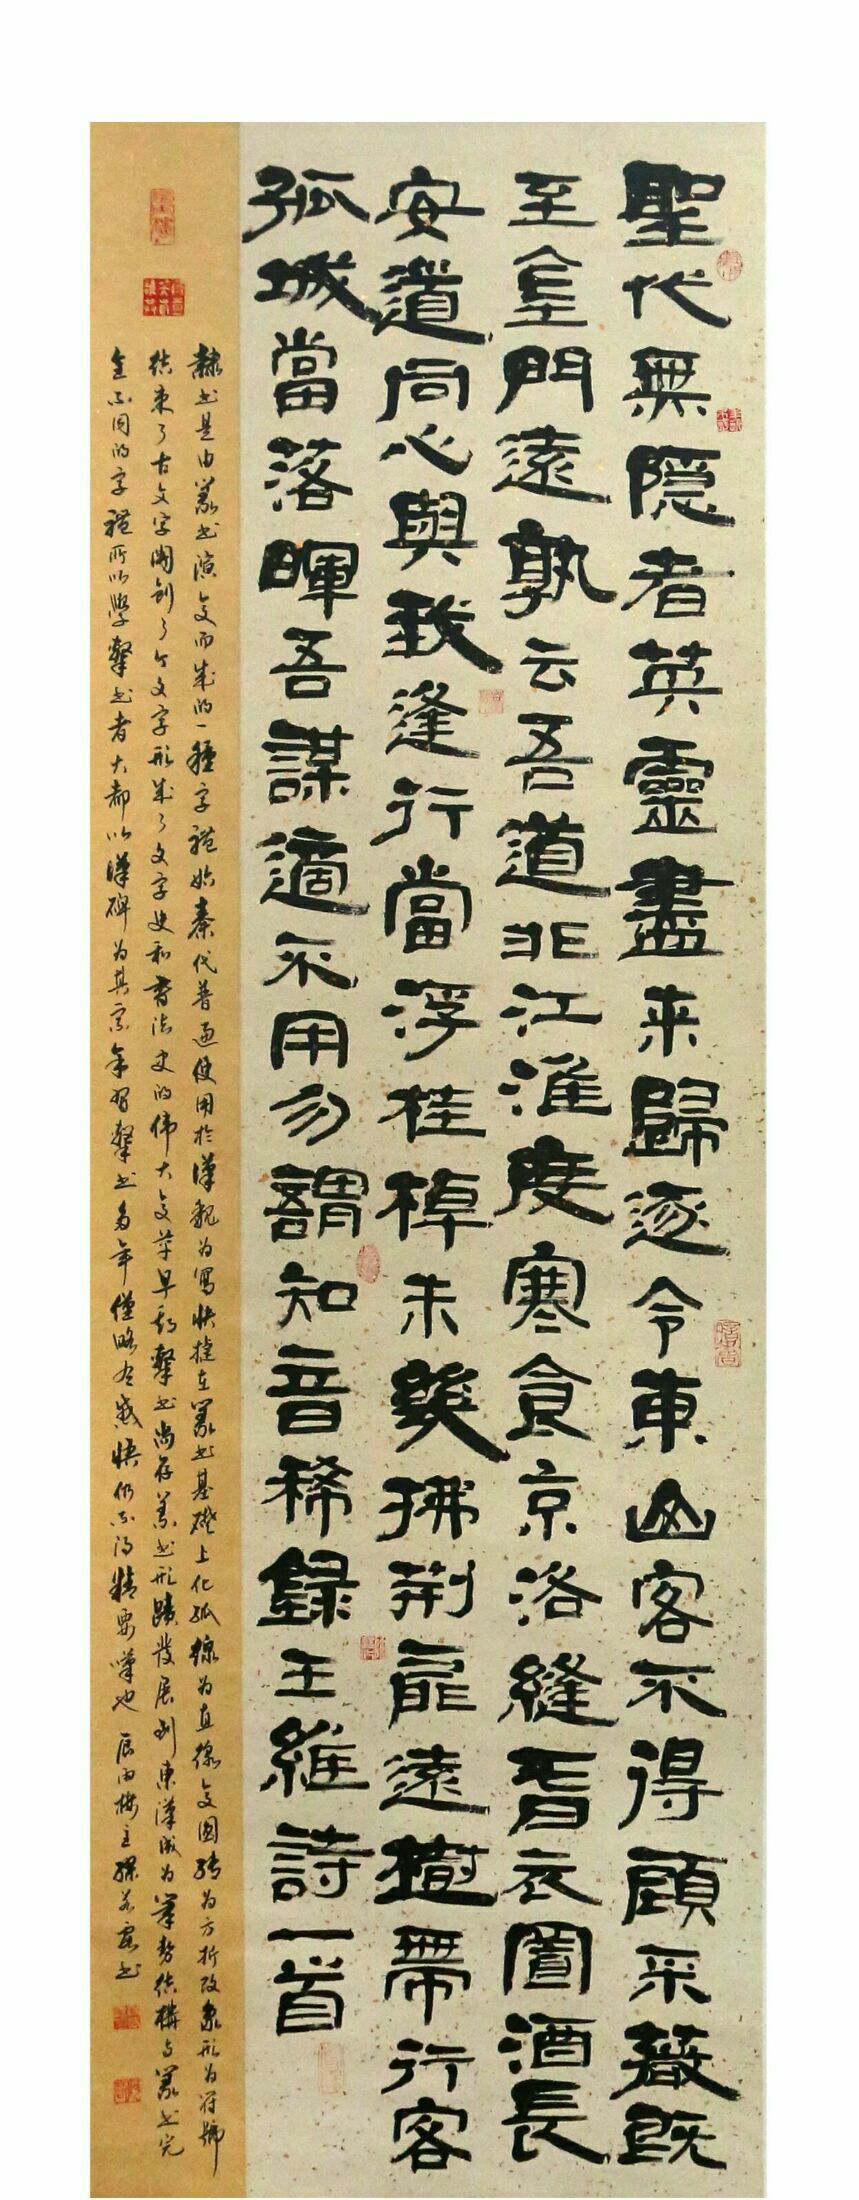 聖代無隱者英靈盡来歸遂令東山客不得顧采薇既
至金門遠孰云吾道非江淮度寒食京洛縫春衣置酒長
安道同心與我違行當浮桂棹未幾拂荊扉遠樹帶行客
孤城當落暉吾謀適不用勿謂知音稀錄王維詩一首
隸书是由篆书演变而成的一種字體始秦代普遍使用於漢魏为寫快捷在篆书基礎上化弧線为直線变圆转为方折改象形为符號
结束了古文字開创了今文字形成了文字史和書法史的伟大变革早期隸书尚存篆书形蹟發展到東漢成为筆势结構与篆书完
全不同的字體所以學隸书者大都以漢碑为其宗余習隸书多年僅略有感悟仍不得精要嘆也